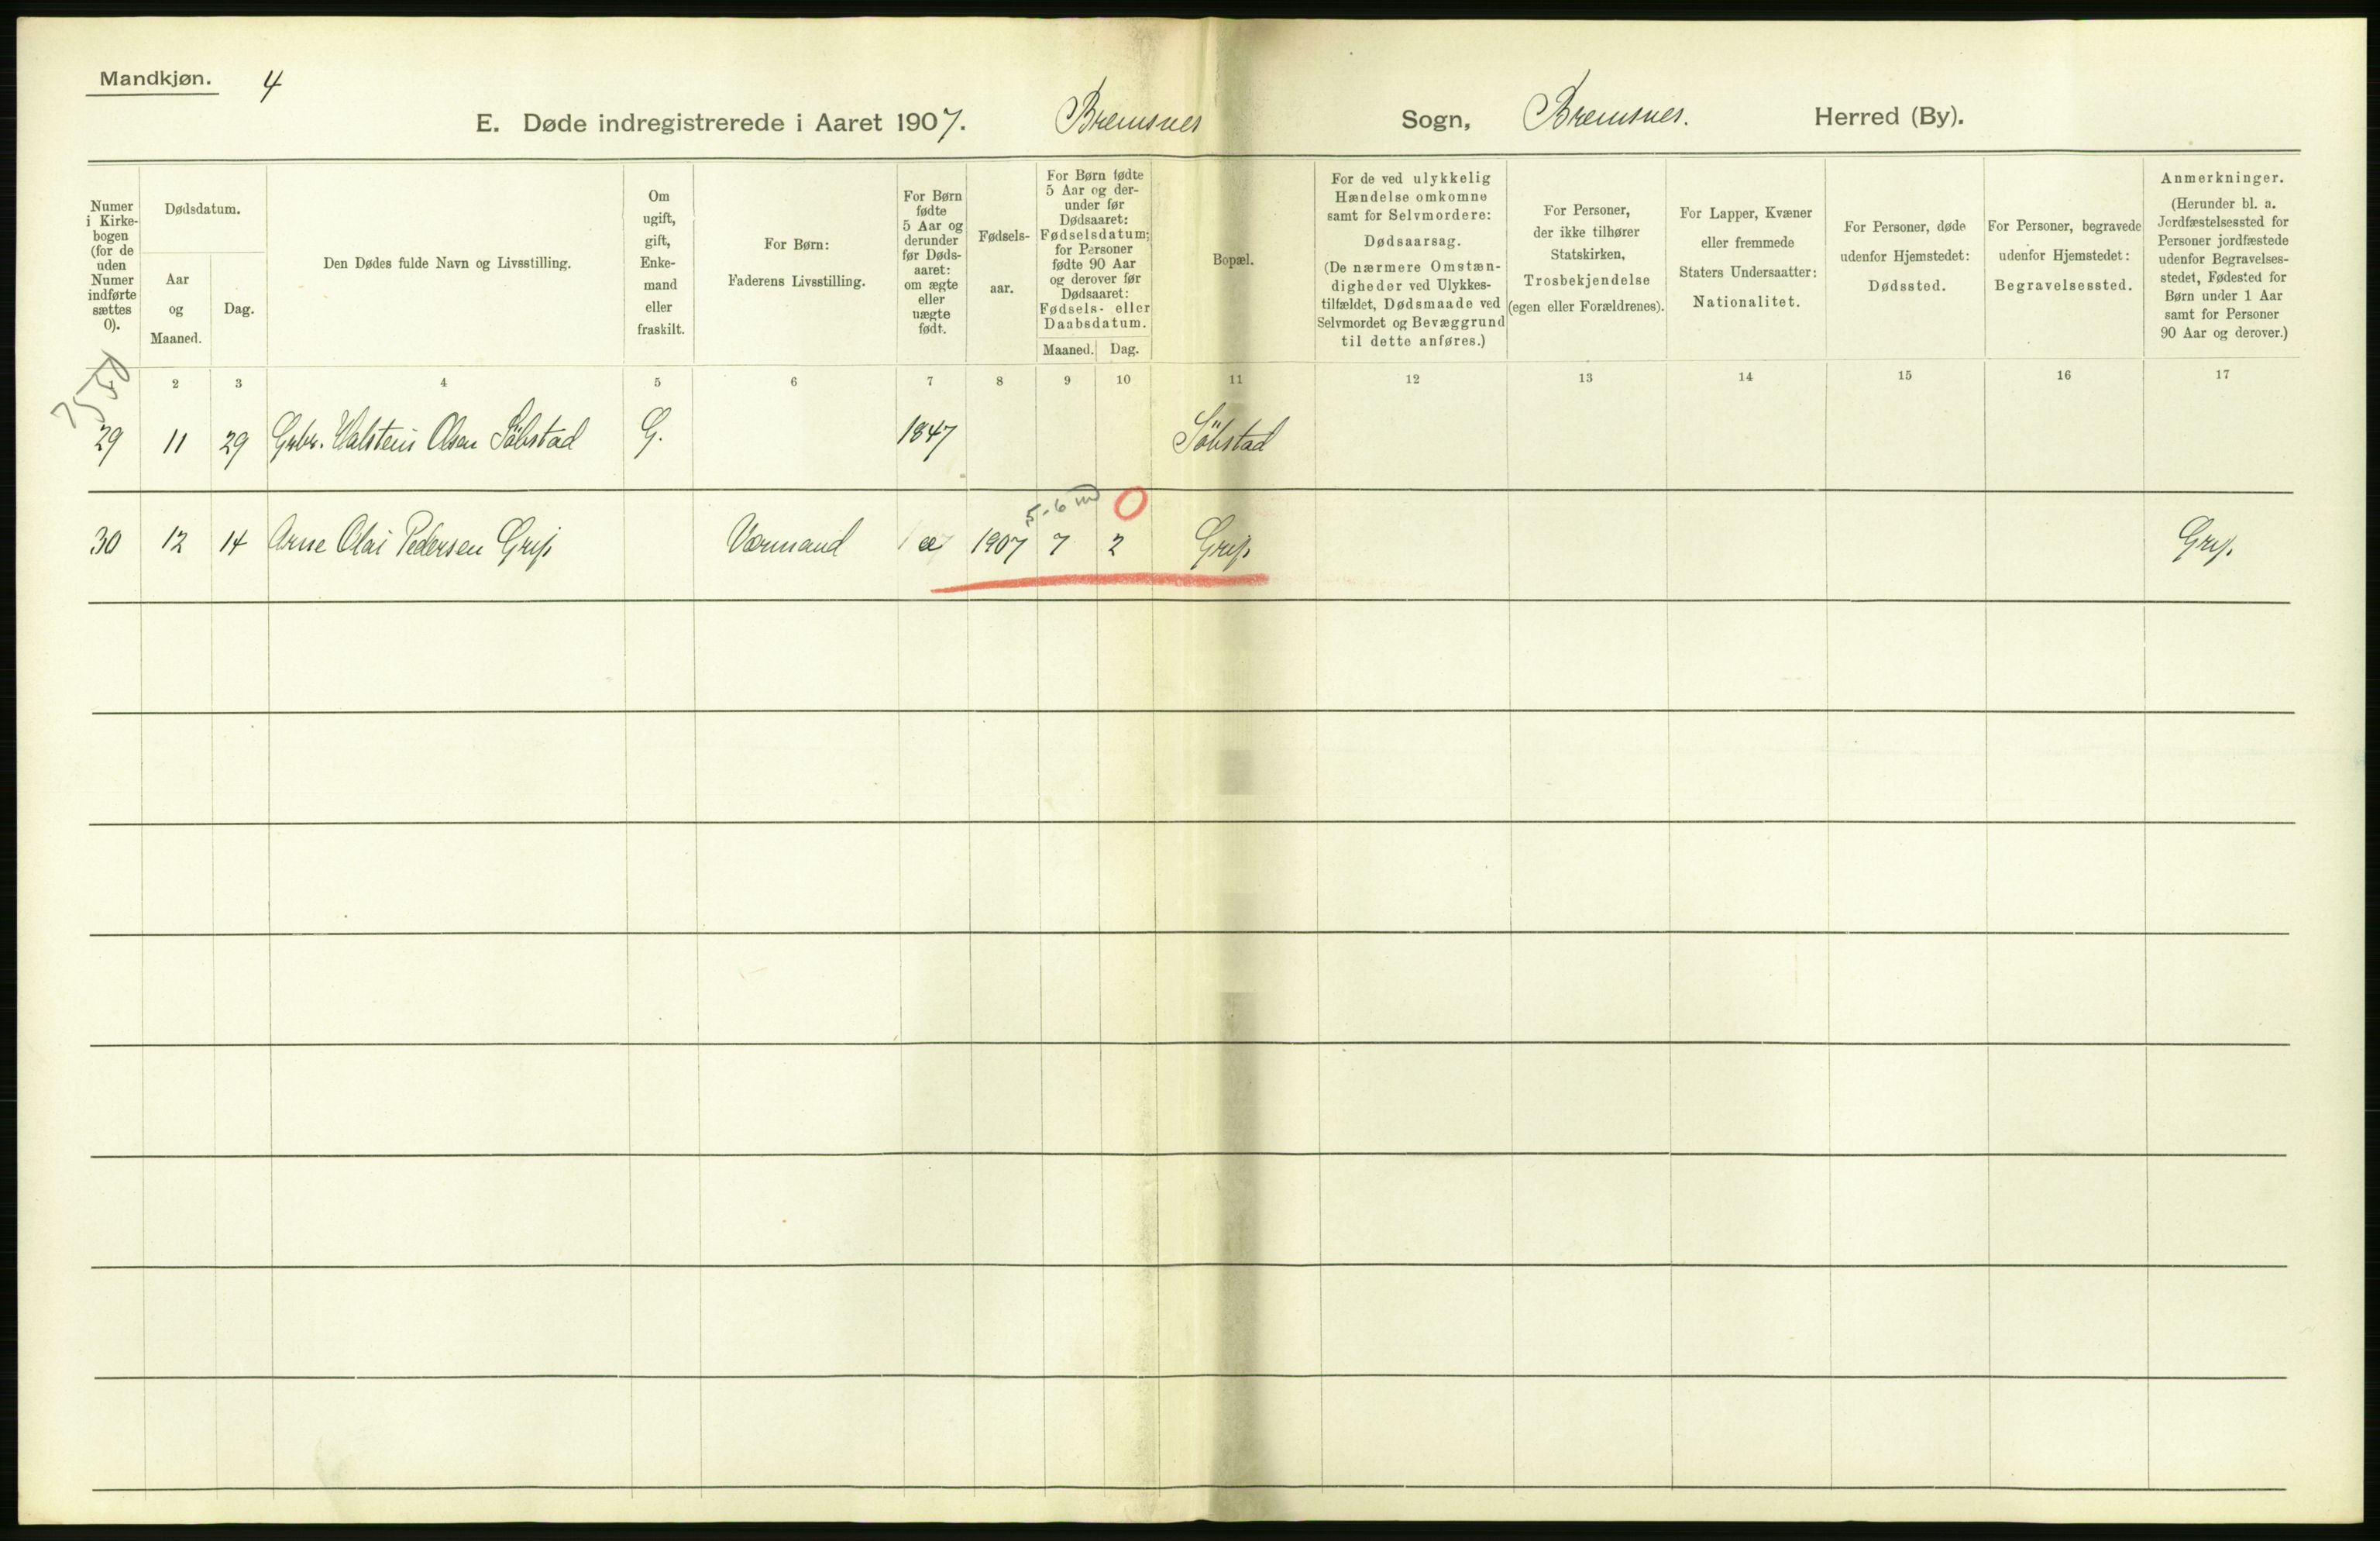 Mandkjøn. 4
E. Døde indregistrerede i Aaret 1907. Bremsnes Sogn, Bremsnes. Herred (By).
Numer
i Kirke-
bogen
(for de
uden
Numer
indførte
sættes
0).
Dødsdatum.
Aar
og
Maaned.
Dag.
Den Dødes fulde Navn og Livsstilling.
Om
ugift,
gift,
Enke-
mand
eller
fraskilt.
For Børn:
Faderens Livsstilling.
For Børn
fødte
5 Aar og
derunder
før Døds-
aaret:
om ægte
eller
uægte
født.
Fødsels-
aar.
For Børn fødte
5 Aar og der-
under før
Dødsaaret:
Fødselsdatum;
for Personer
fødte 90 Aar
og derover før
Dødsaaret:
Fødsels- eller
Daabsdatum.
Maaned. Dag.
Bopæl.
For de ved ulykkelig
Hændelse omkomne
samt for Selvmordere:
Dødsaarsag.
(De nærmere Omstæn-
digheder ved Ulykkes-
tilfældet, Dødsmaade ved
Selvmordet og Bevæggrund
til dette anføres.)
For Personer,
der ikke tilhører
Statskirken,
Trosbekjendelse
(egen eller Forældrenes).
For Lapper, Kvæner
eller fremmede
Staters Undersaatter:
Nationalitet.
For Personer, døde
udenfor Hjemstedet:
Dødssted.
For Personer, begravede
udenfor Hjemstedet:
Begravelsessted.
Anmerkninger.
(Herunder bl. a.
Jordfæstelsessted for
Personer jordfæstede
udenfor Begravelses-
stedet, Fødested for
Børn under 1 Aar
samt for Personer
90 Aar og derover.)
2 3 4 5 6 7 8 9 10 11 12 13 14 15 16 17
29 11 29 Gbr. Halstein Olsen Söbstad G. 1847 Söbstad
5-6 m 0
30 12 14 Arne Olai Pedersen Grip Værmand æ 1907 7 2 Grip Grip.